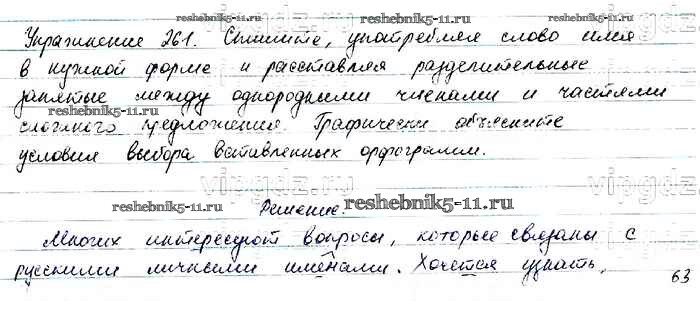 reshebnik5-11.ru
Упражнение 261. Спишите, употребляя слово имя
в нужной форме и расставляя разделительные
запятые между однородными членами и частями
reshebnik5-11.ru
сложного предложения. Графически объясните
условия выбора вставленных орфограмм.
vipgdz.ru
reshebnik5-11.ru Решение. reshebnik5-11.ru
Многих интересуют вопросы, которые связаны с
русскими личными именами. Хочется узнать,
63